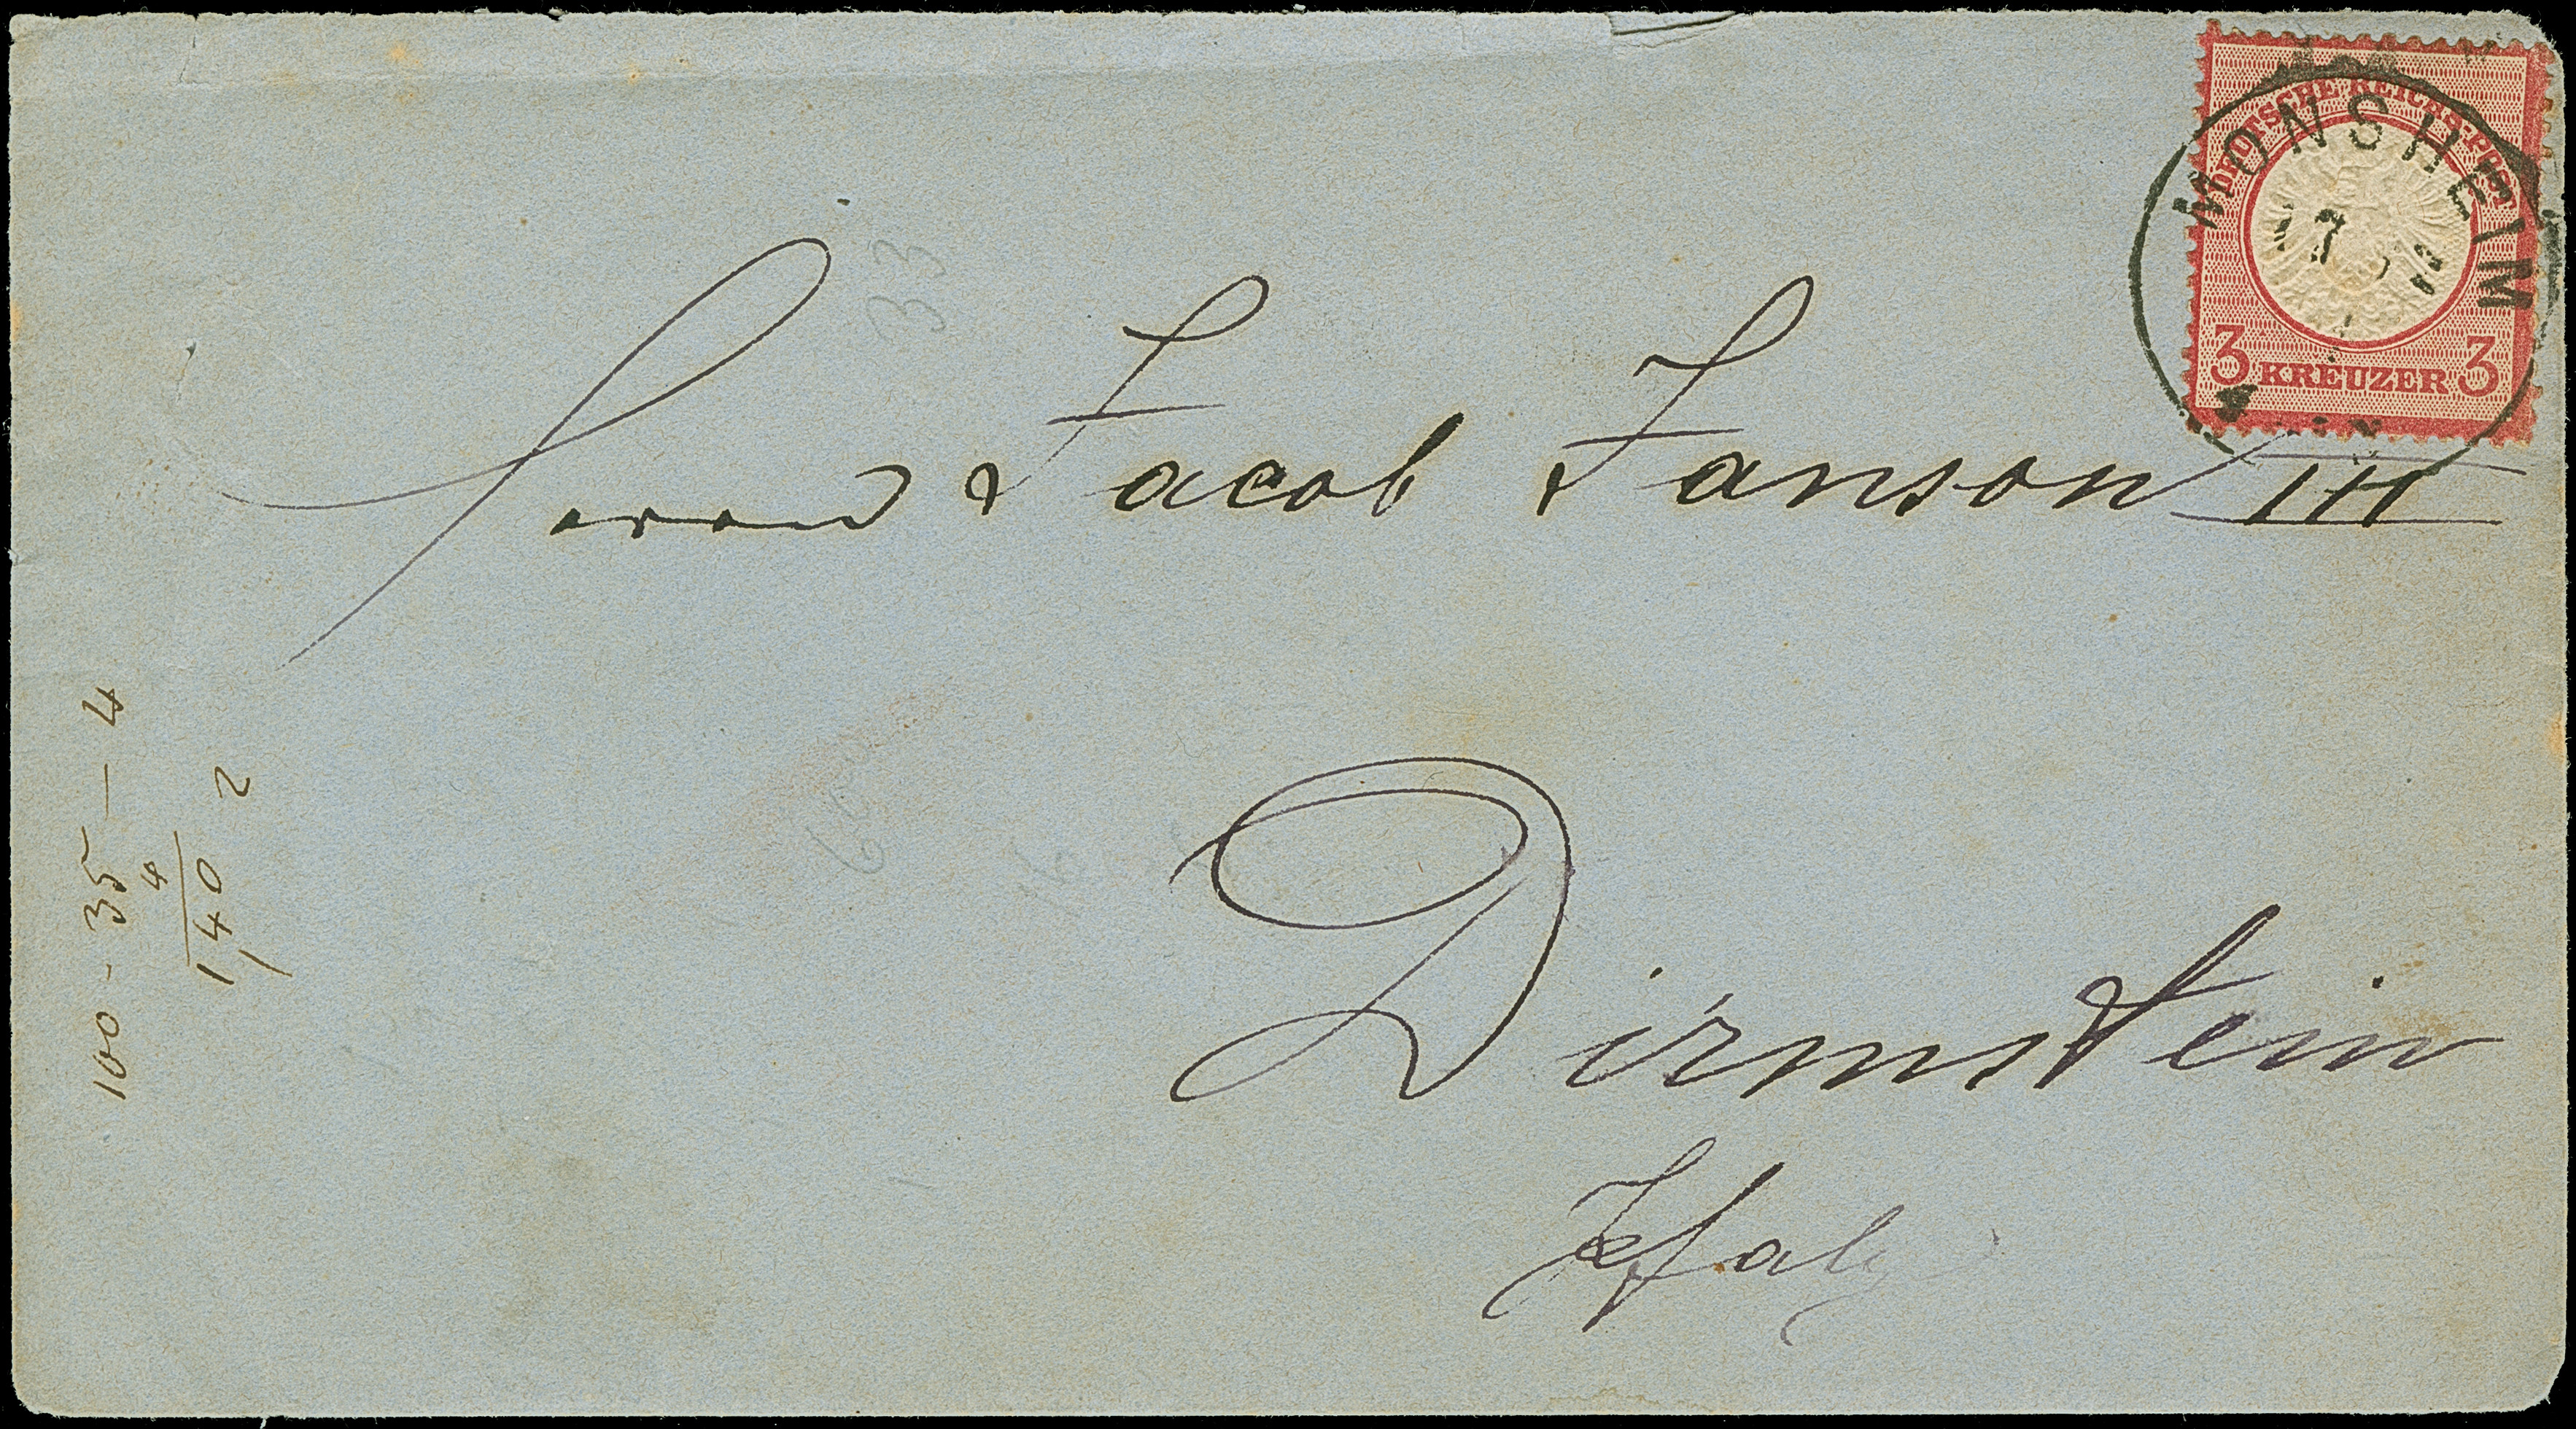 DEUTSCHE REICHS-POST
MONSHEIM
3 KREUZER 3
Herrn Jacob Janson III
Dirmstein
Pfalz
100 - 35 — 4
4
140 2
33